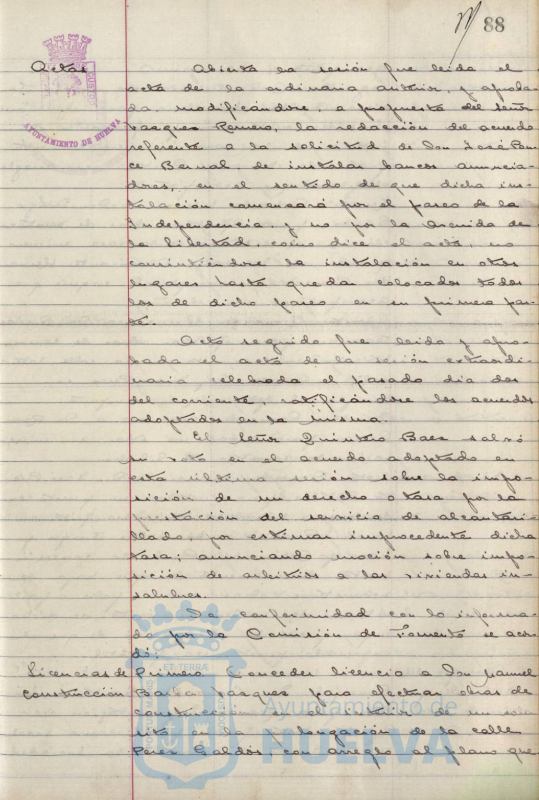 88
AYUNTAMIENTO DE HUELVA
Actas
Abierta la sesión fue leida el
acta de la ordinaria anterior, y aproba-
da, modificándose, a propuesta del señor
Vazquez Romero, la redacción del acuerdo
referente a la solicitud de Don José Pon-
ce Bernal de instalar bancos anuncia-
dores, en el sentido de que dicha ins-
talación comenzará por el paseo de la
Independencia, y no por la Avenida de
la libertad, como dice el acta, no
consintiéndose la instalación en otros
lugares hasta quedar colocados todos
los de dicho paseo en su primera par-
te.
Acto seguido fue leida y apro-
bada el acta de la sesión extraordi-
naria celebrada el pasado dia dos
del corriente, ratificándose los acuerdos
adoptados en la misma.
El Señor Quintero Baez salvó
su voto en el acuerdo adoptado en
esta última sesión sobre la impo-
sición de un derecho o tasa por la
prestación del servicio de alcantari-
llado, por estimar improcedente dicha
tasa; anunciando moción sobre impo-
sición de arbitrios a las viviendas in-
salubres.
De conformidad con lo informa-
do por la Comisión de Fomento se acor-
dó:
Licencias de
construcción
Primero. Conceder licencia a Don Manuel
Vazquez para efectuar obras de
construcción en el de un sola-
sito en la prolongación de la calle
Perez Galdós con arreglo al plano que
Ayuntamiento de
HUELVA